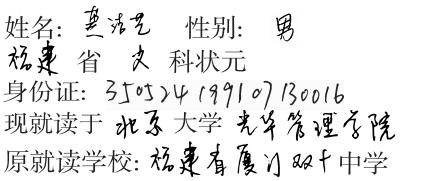 姓名: 洁艺 性别: 男
福建 省 文 科状元
身份证: 350524199107130016
现就读于 北京 大学 光华管理学院
原就读学校: 福建省厦门双十中学